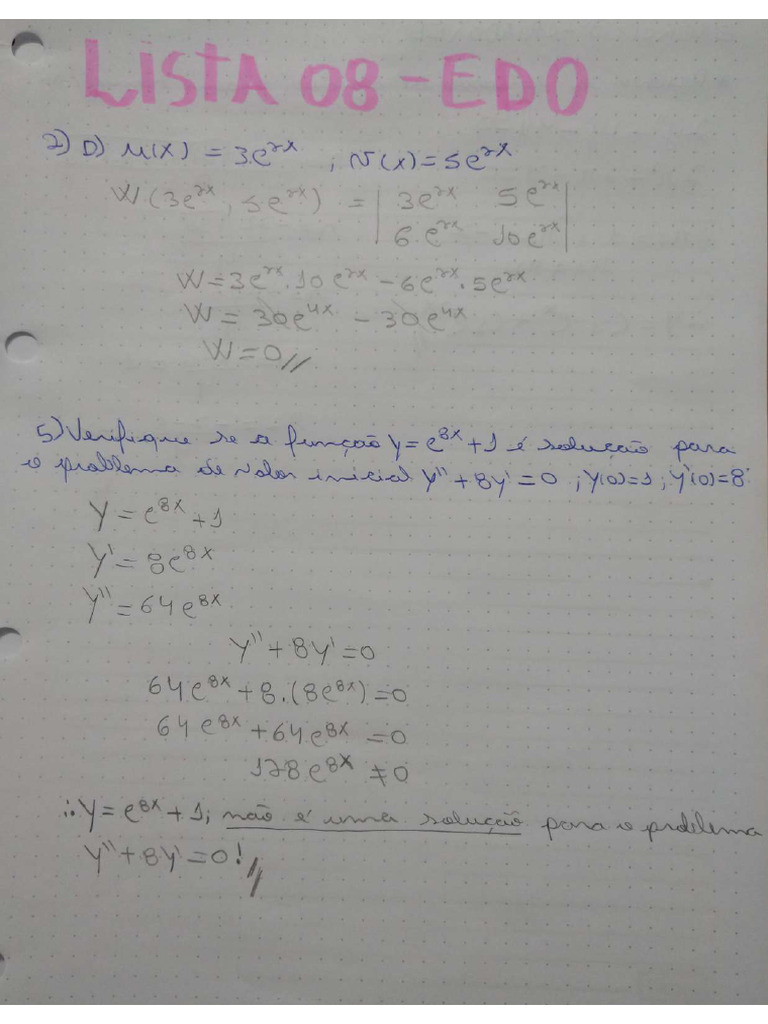 LISTA 08 - EDO
2) D) u(x) = 3e^2x , v(x) = 5e^2x
W(3e^2x, 5e^2x) = | 3e^2x 5e^2x |
| 6e^2x 10e^2x |
W = 3e^2x . 10e^2x - 6e^2x . 5e^2x
W = 30e^4x - 30e^4x
W = 0 //
5) Verifique se a função y = e^8x + 1 é solução para
o problema de valor inicial y'' + 8y' = 0 ; y(0)=1 ; y'(0)=8:
y = e^8x + 1
y' = 8e^8x
y'' = 64e^8x
y'' + 8y' = 0
64e^8x + 8.(8e^8x) = 0
64e^8x + 64e^8x = 0
128e^8x ≠ 0
∴ y = e^8x + 1, não é uma solução para o problema
y'' + 8y' = 0! //